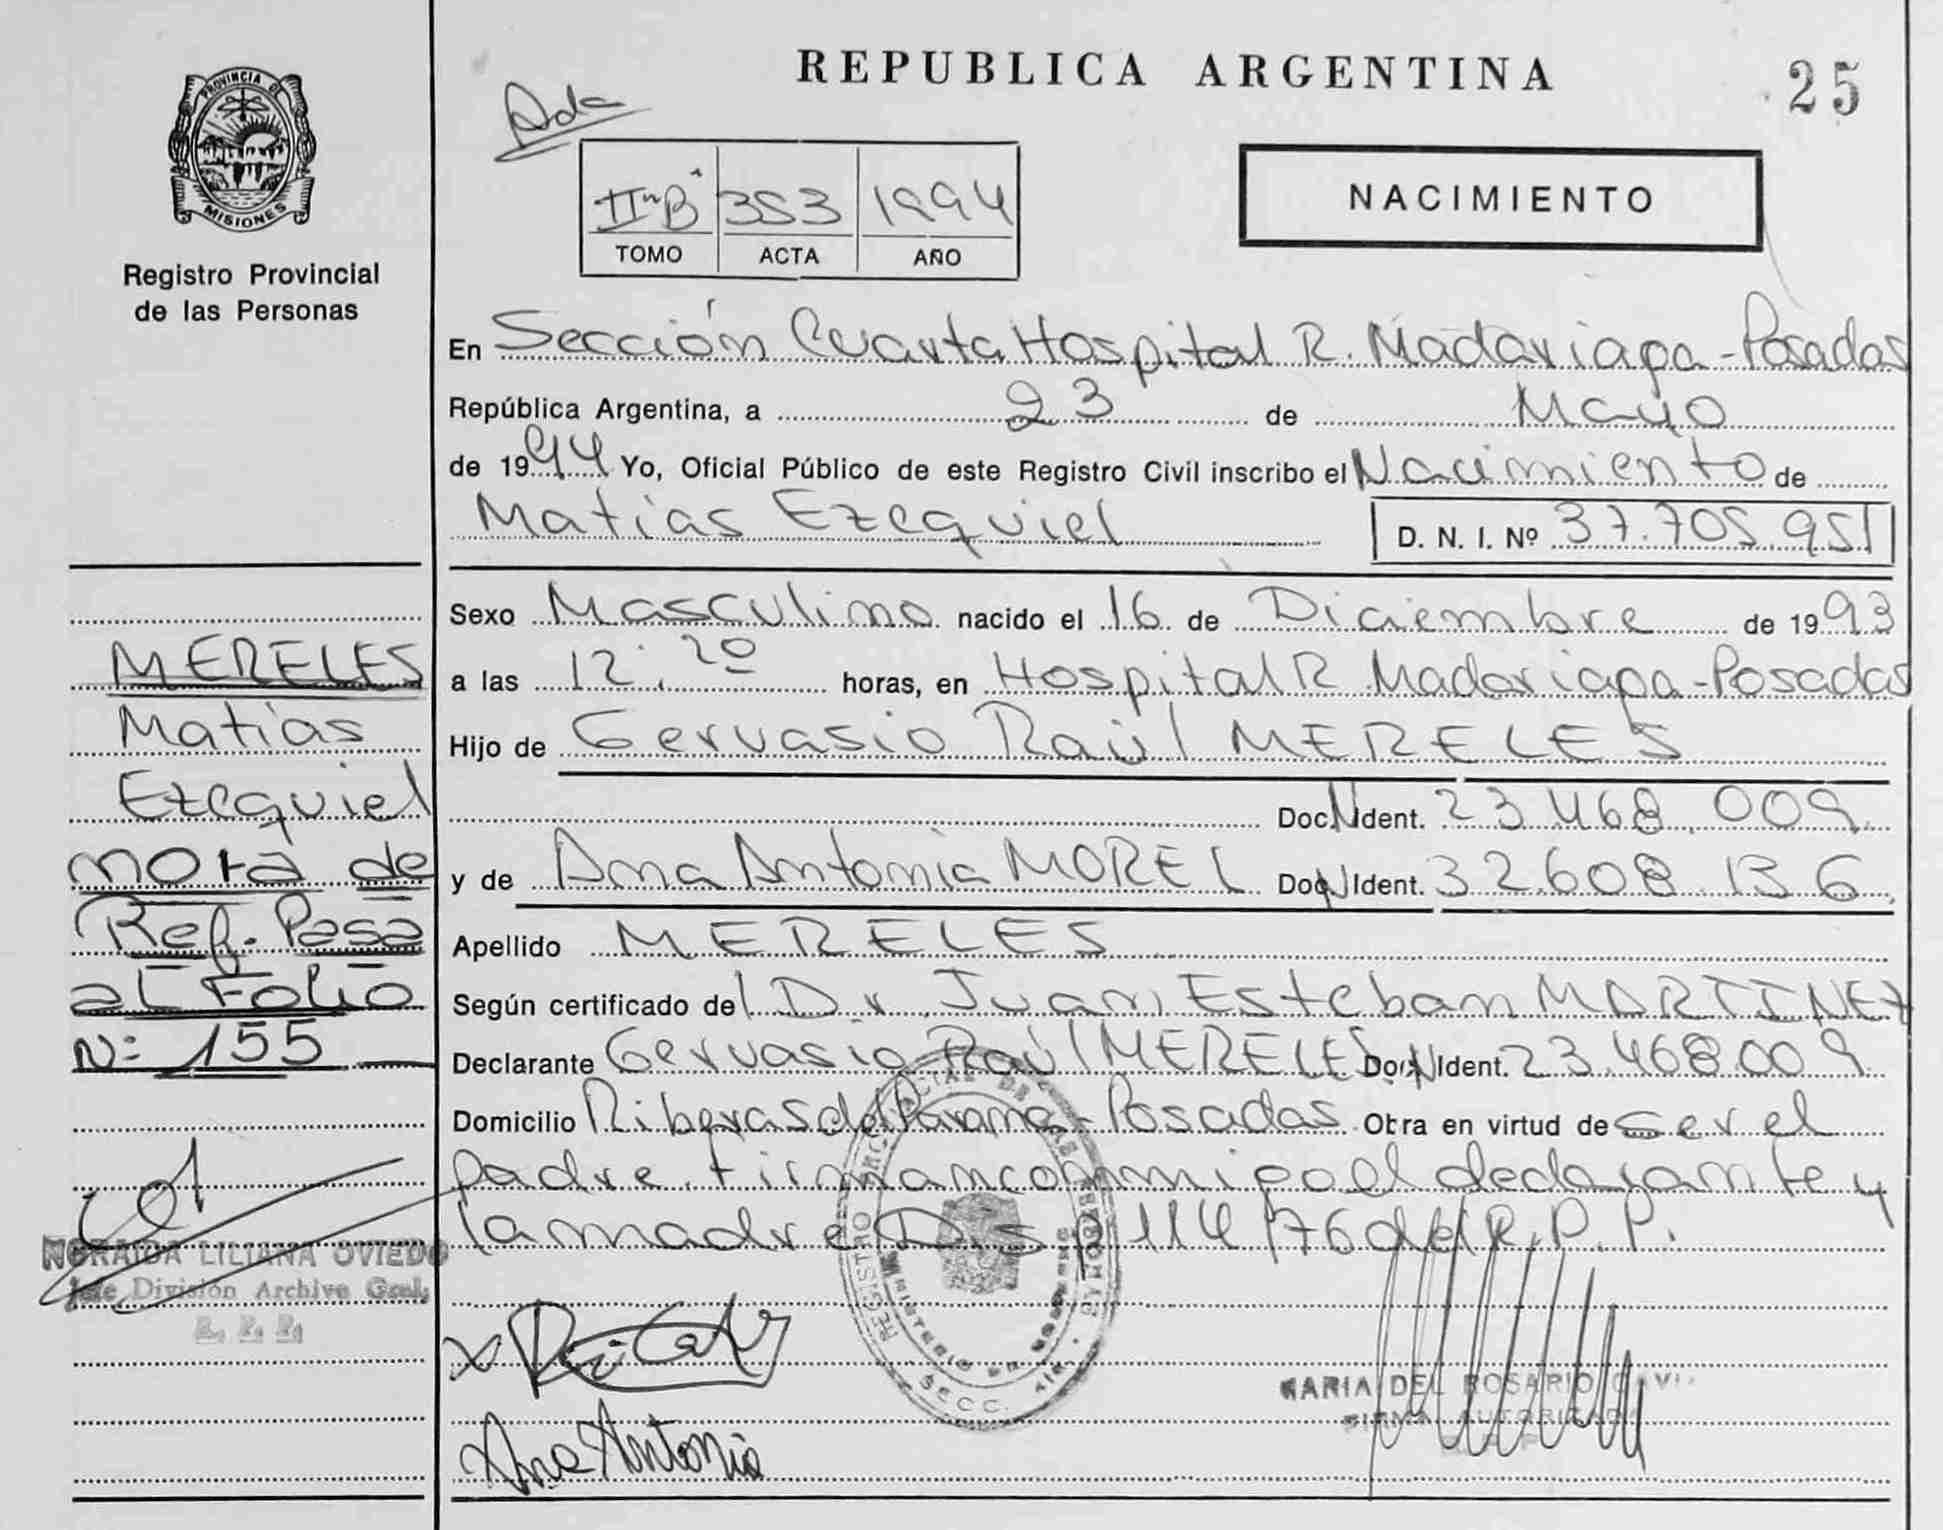 REPUBLICA ARGENTINA
25
PROVINCIA DE
MISIONES
Registro Provincial
de las Personas
353 1994
TOMO ACTA AÑO
NACIMIENTO
En Sección Cuarta Hospital R. Madariaga - Posadas
República Argentina, a 23 de Mayo
de 1994 Yo, Oficial Público de este Registro Civil inscribo el Nacimiento de
Matías Ezequiel D. N. I. Nº 37.705.951
Sexo Masculino nacido el 16 de Diciembre de 1993
a las 12:20 horas, en Hospital R. Madariaga - Posadas
Hijo de Gervasio Raúl MERELES
Doc. N Ident. 23.468.009
y de Ana Antonia MOREL Doc. N Ident. 32.608.136
Apellido MERELES
Según certificado del Dr. Juan Esteban MARTINEZ
Declarante Gervasio Raúl MERELES Doc. N Ident. 23.468.009
Domicilio Riberas del Paraná - Posadas Obra en virtud de ser el
padre. Firman conmigo el declarante y
la madre Disp 114/76 del R. P. P.
MERELES
Matías
Ezequiel
nota de
Ref. Pasa
al Folio
N: 155
NORAIDA LILIANA OVIEDO
Jefe División Archivo Gral.
R. P. P.
Ana Antonia
MARIA DEL ROSARIO
FIRMA AUTORIZADA